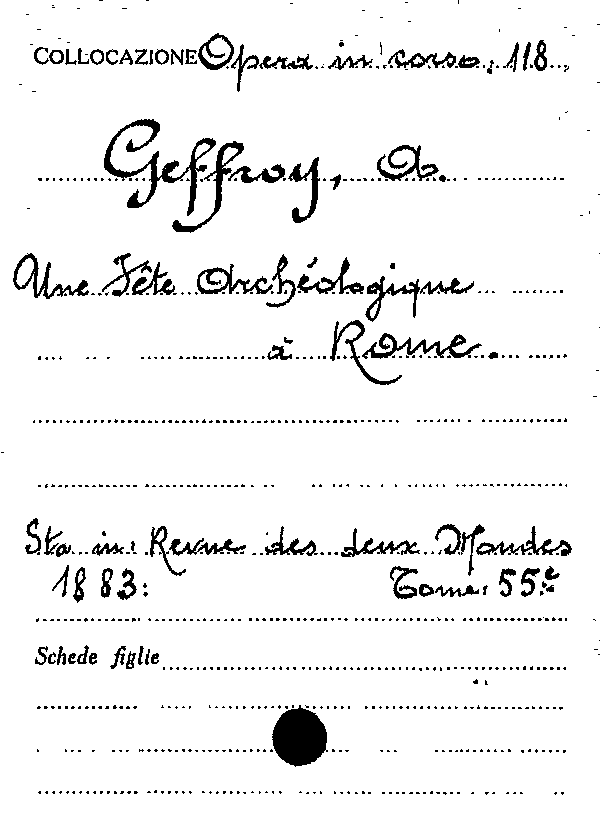 COLLOCAZIONE Opera in corso. 118
Geffroy, A.
Une Fête Archéologique
à Rome.
Sta in: Revue des deux Mondes
1883: Tome: 55:e
Schede figlie